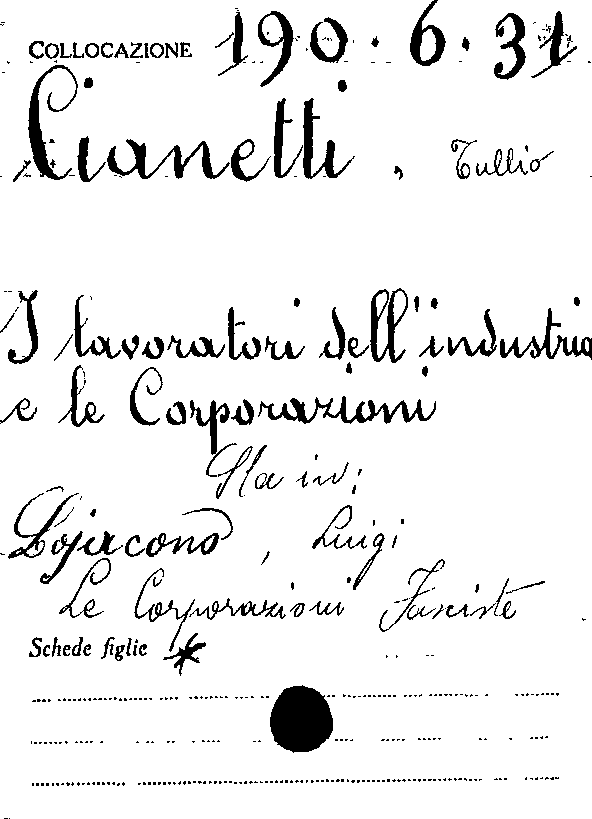 COLLOCAZIONE 190.6.31
Cianetti, Tullio
I lavoratori dell'industria
e le Corporazioni
Sta in:
Lojacono, Luigi
Le Corporazioni Fasciste
Schede figlie *